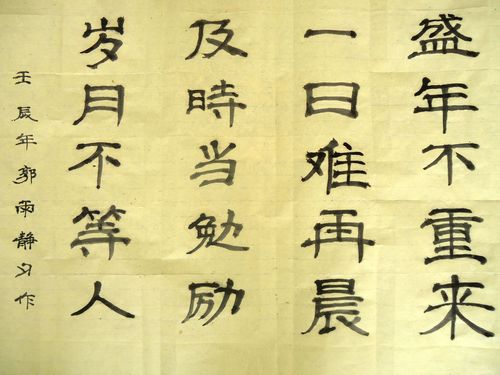 盛年不重来
一日难再晨
及時当勉励
岁月不等人
壬辰年郭雨静习作